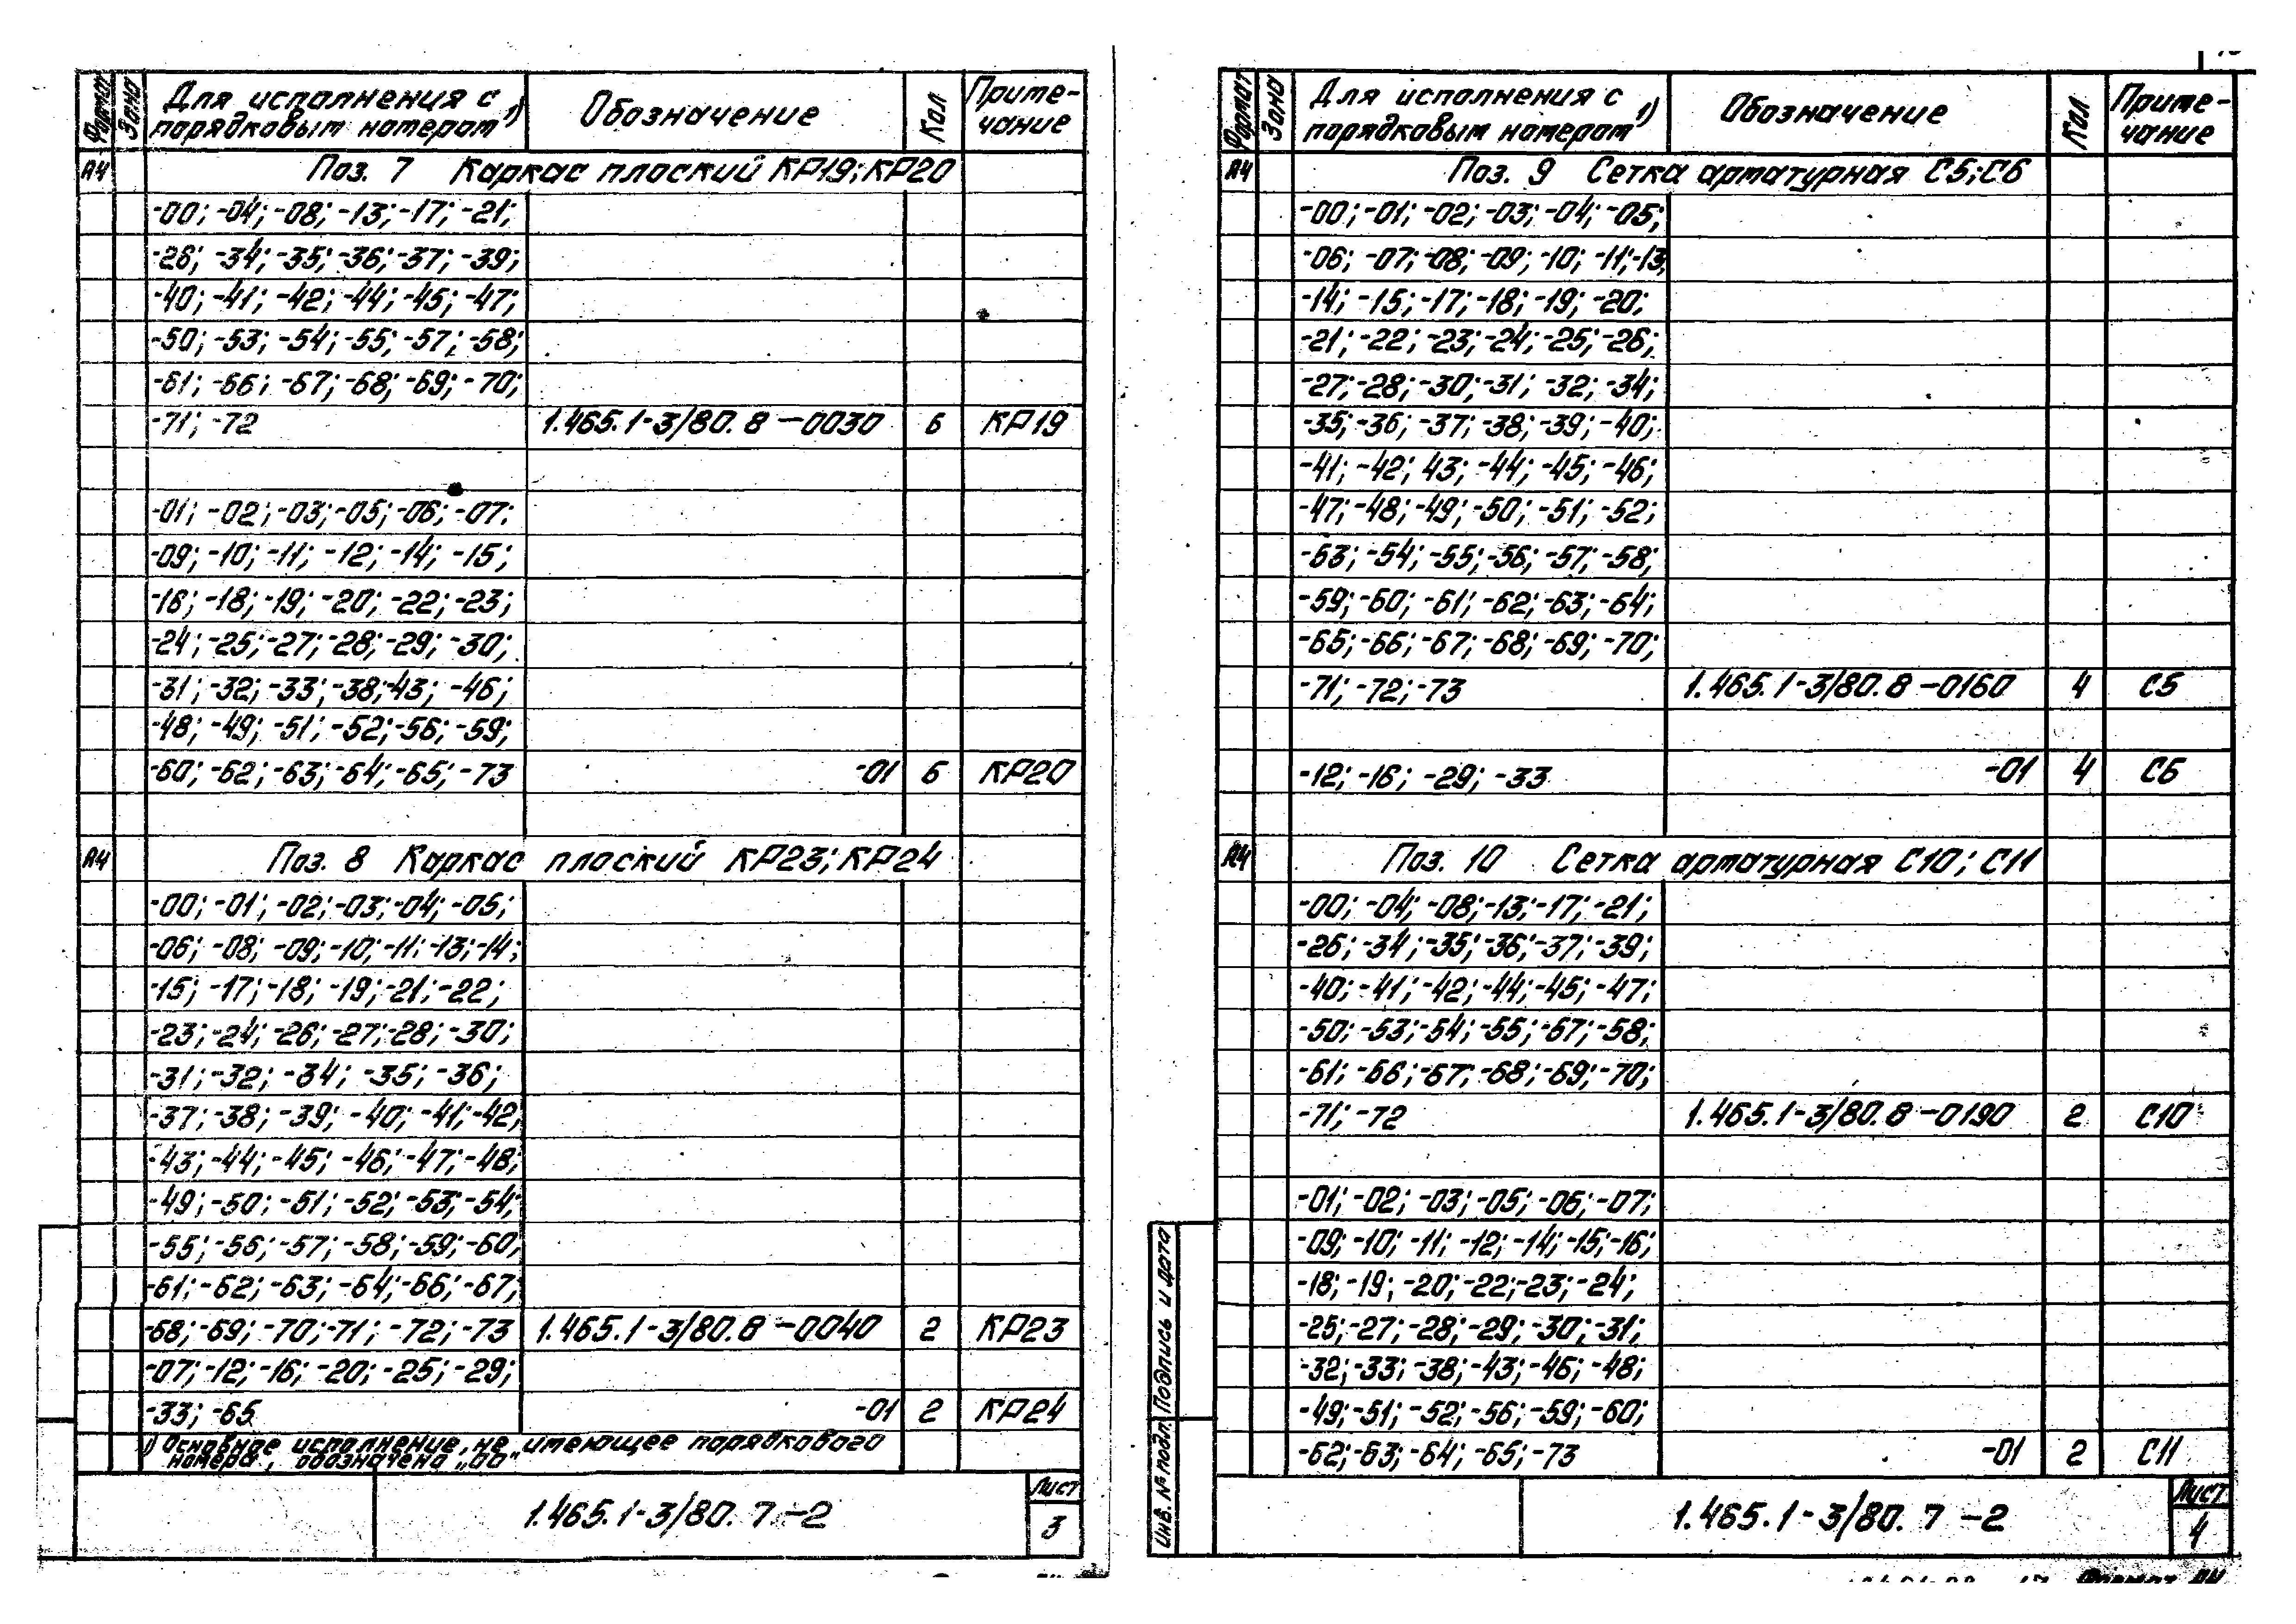 Формат Зона Для исполнения с порядковым номером 1) Обозначение Кол Приме-чание
А4 Поз. 7 Каркас плоский КР19; КР20
-00; -04; -08; -13; -17; -21;
-26; -34; -35; -36; -37; -39;
-40; -41; -42; -44; -45; -47;
-50; -53; -54; -55; -57; -58;
-61; -66; -67; -68; -69; -70;
-71; -72 1.465.1-3/80.8-0030 6 КР19
-01; -02; -03; -05; -06; -07;
-09; -10; -11; -12; -14; -15;
-16; -18; -19; -20; -22; -23;
-24; -25; -27; -28; -29; -30;
-31; -32; -33; -38; -43; -46;
-48; -49; -51; -52; -56; -59;
-60; -62; -63; -64; -65; -73 -01 6 КР20
А4 Поз. 8 Каркас плоский КР23; КР24
-00; -01; -02; -03; -04; -05;
-06; -08; -09; -10; -11; -13; -14;
-15; -17; -18; -19; -21; -22;
-23; -24; -26; -27; -28; -30;
-31; -32; -34; -35; -36;
-37; -38; -39; -40; -41; -42;
-43; -44; -45; -46; -47; -48;
-49; -50; -51; -52; -53; -54;
-55; -56; -57; -58; -59; -60;
-61; -62; -63; -64; -66; -67;
-68; -69; -70; -71; -72; -73 1.465.1-3/80.8-0040 2 КР23
-07; -12; -16; -20; -25; -29;
-33; -65 -01 2 КР24
1) Основное исполнение, не имеющее порядкового
номера, обозначено „00"
1.465.1-3/80. 7 -2 Лист 3
Формат Зона Для исполнения с порядковым номером 1) Обозначение Кол Приме-чание
А4 Поз. 9 Сетка арматурная С5; С6
-00; -01; -02; -03; -04; -05;
-06; -07; -08; -09; -10; -11; -13;
-14; -15; -17; -18; -19; -20;
-21; -22; -23; -24; -25; -26;
-27; -28; -30; -31; -32; -34;
-35; -36; -37; -38; -39; -40;
-41; -42; 43; -44; -45; -46;
-47; -48; -49; -50; -51; -52;
-53; -54; -55; -56; -57; -58;
-59; -60; -61; -62; -63; -64;
-65; -66; -67; -68; -69; -70;
-71; -72; -73 1.465.1-3/80.8-0160 4 С5
-12; -16; -29; -33 -01 4 С6
А4 Поз. 10 Сетка арматурная С10; С11
-00; -04; -08; -13; -17; -21;
-26; -34; -35; -36; -37; -39;
-40; -41; -42; -44; -45; -47;
-50; -53; -54; -55; -57; -58;
-61; -66; -67; -68; -69; -70;
-71; -72 1.465.1-3/80.8-0190 2 С10
-01; -02; -03; -05; -06; -07;
-09; -10; -11; -12; -14; -15; -16;
-18; -19; -20; -22; -23; -24;
-25; -27; -28; -29; -30; -31;
-32; -33; -38; -43; -46; -48;
-49; -51; -52; -56; -59; -60;
-62; -63; -64; -65; -73 -01 2 С11
Инв. № подл. Подпись и дата
1.465.1-3/80. 7 -2 Лист 4
Формат А4